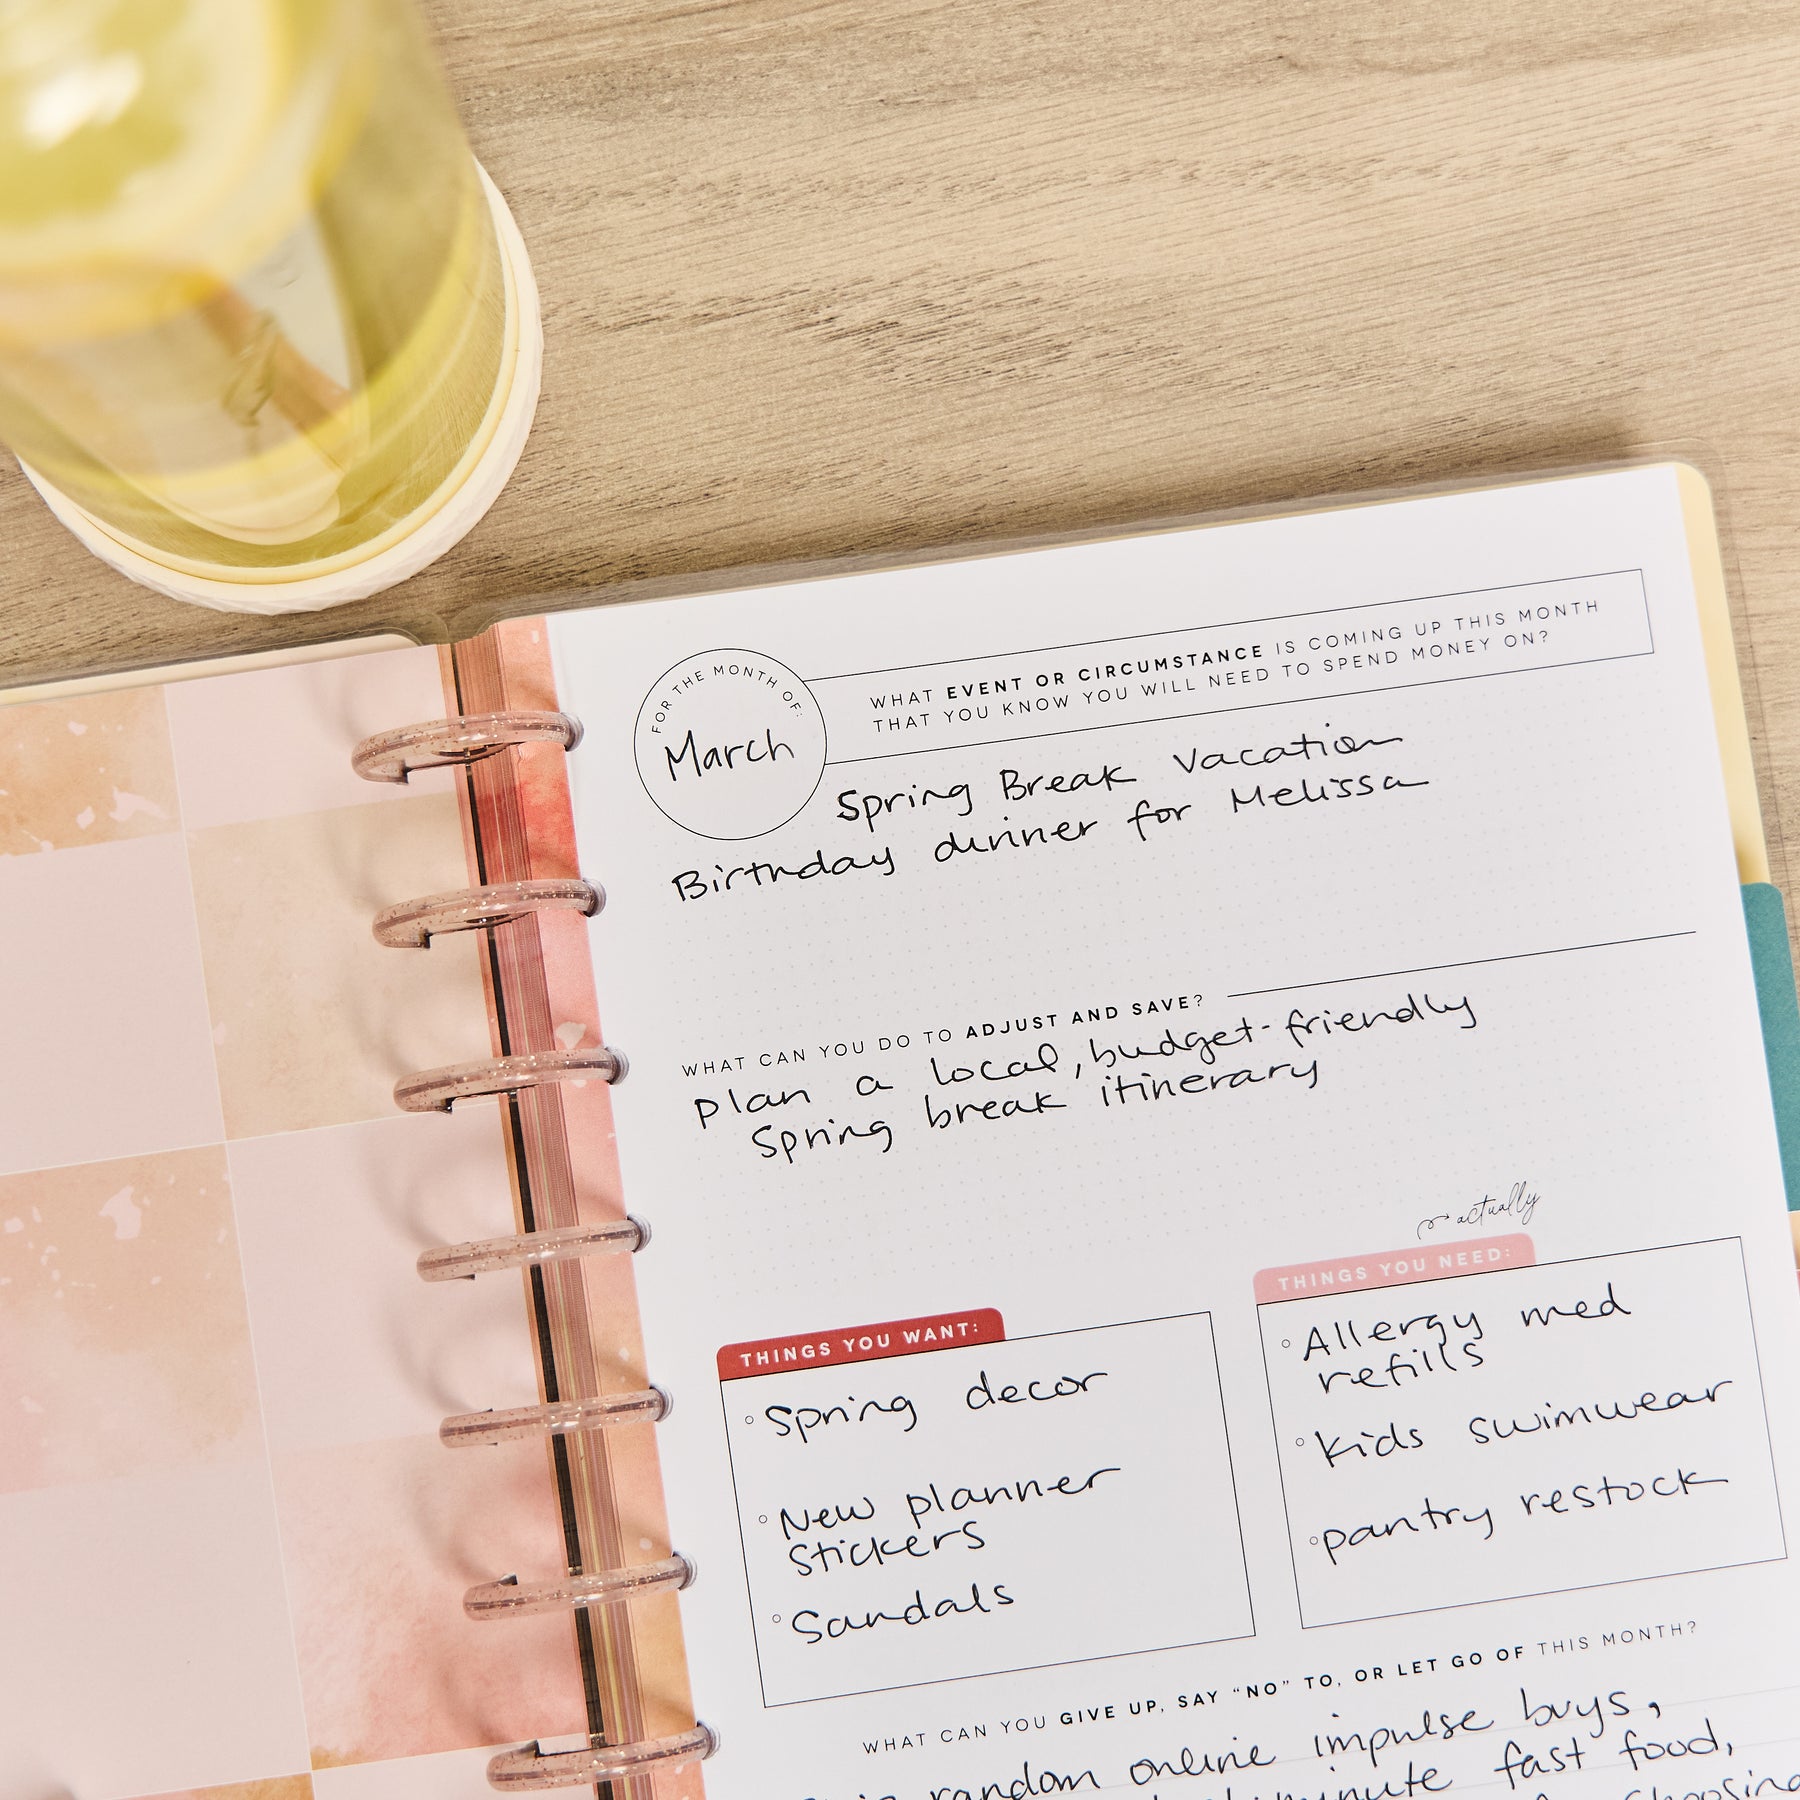 FOR THE MONTH OF:
March
WHAT EVENT OR CIRCUMSTANCE IS COMING UP THIS MONTH
THAT YOU KNOW YOU WILL NEED TO SPEND MONEY ON?
Spring Break Vacation
Birthday dinner for Melissa
WHAT CAN YOU DO TO ADJUST AND SAVE?
plan a local, budget-friendly
Spring break itinerary
actually
THINGS YOU WANT:
Spring decor
New planner
Stickers
Sandals
THINGS YOU NEED:
Allergy med
refills
Kids swimwear
pantry restock
WHAT CAN YOU GIVE UP, SAY “NO” TO, OR LET GO OF THIS MONTH?
random online impulse buys,
minute fast food,
choosing